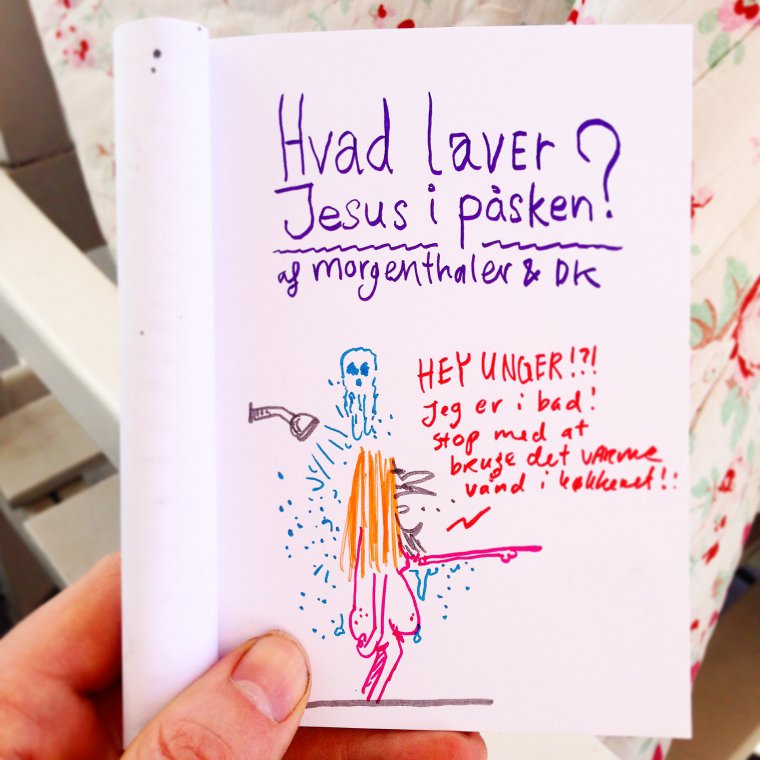 Hvad laver
Jesus i påsken?
af morgenthaler & DK
HEY UNGER!?!
Jeg er i bad!
stop med at
bruge det varme
vand i køkkenet!!